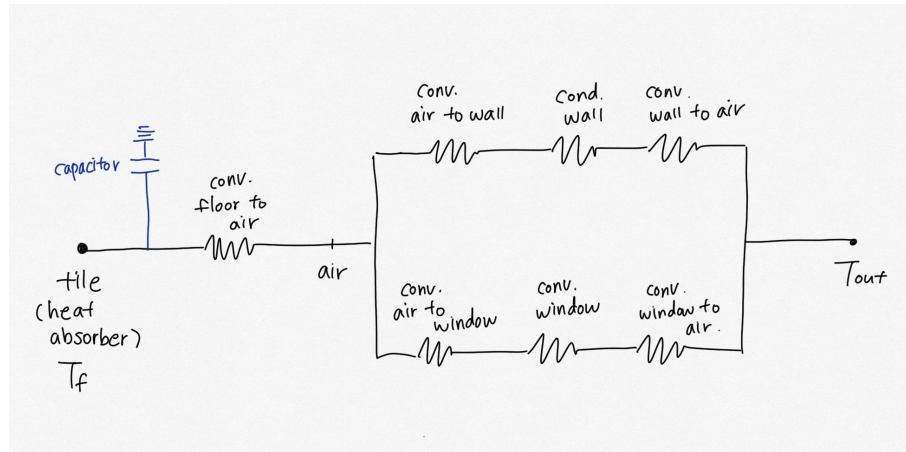 conv.
air to wall
Cond.
wall
conv.
wall to air
capacitor
conv.
floor to
air
air
tile
(heat
absorber)
Tf
conv.
air to
window
conv.
window
conv.
window to
air.
Tout